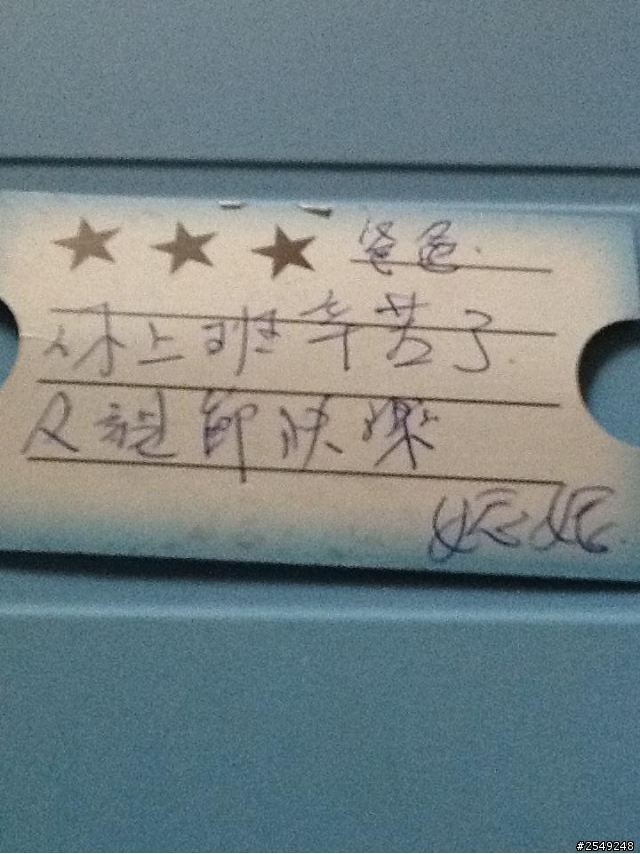 爸爸.
你上班辛苦了.
父親節快樂
#2549248